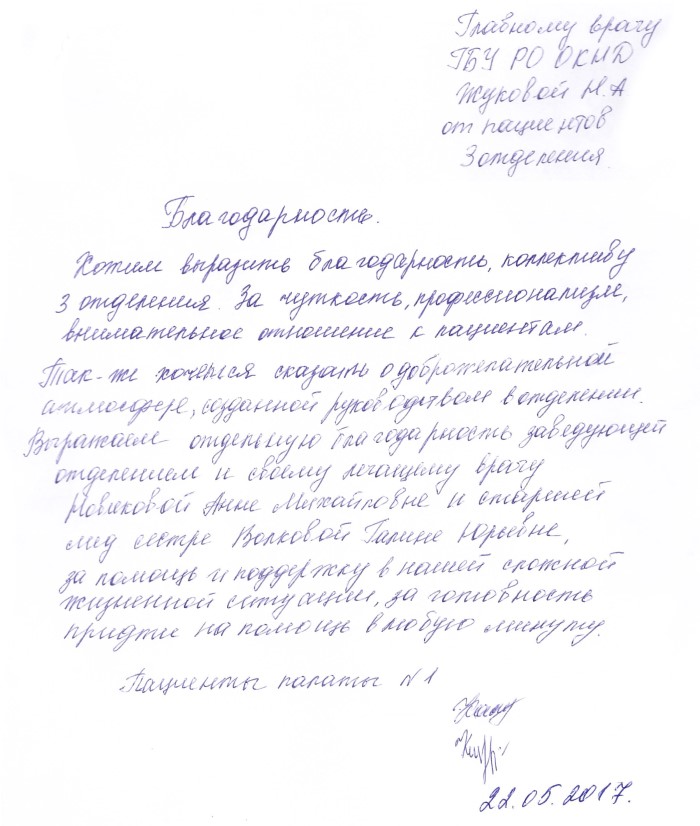 Главному врачу
ГБУ РО ОКНД
Жуковой Н.А
от пациентов
3 отделения
Благодарность.
Хотим выразить благодарность, коллективу
3 отделения. За чуткость, профессионализм,
внимательное отношение к пациентам.
Так-же хочется сказать о доброжелательной
атмосфере, созданной руководством в отделении.
Выражаем отдельную благодарность заведующей
отделением и своему лечащему врачу
Новиковой Анне Михайловне и старшей
мед сестре Волковой Галине Юрьевне,
за помощь и поддержку в нашей сложной
жизненной ситуации, за готовность
придти на помощь в любую минуту.
Пациенты палаты N 1
22.05.2017.